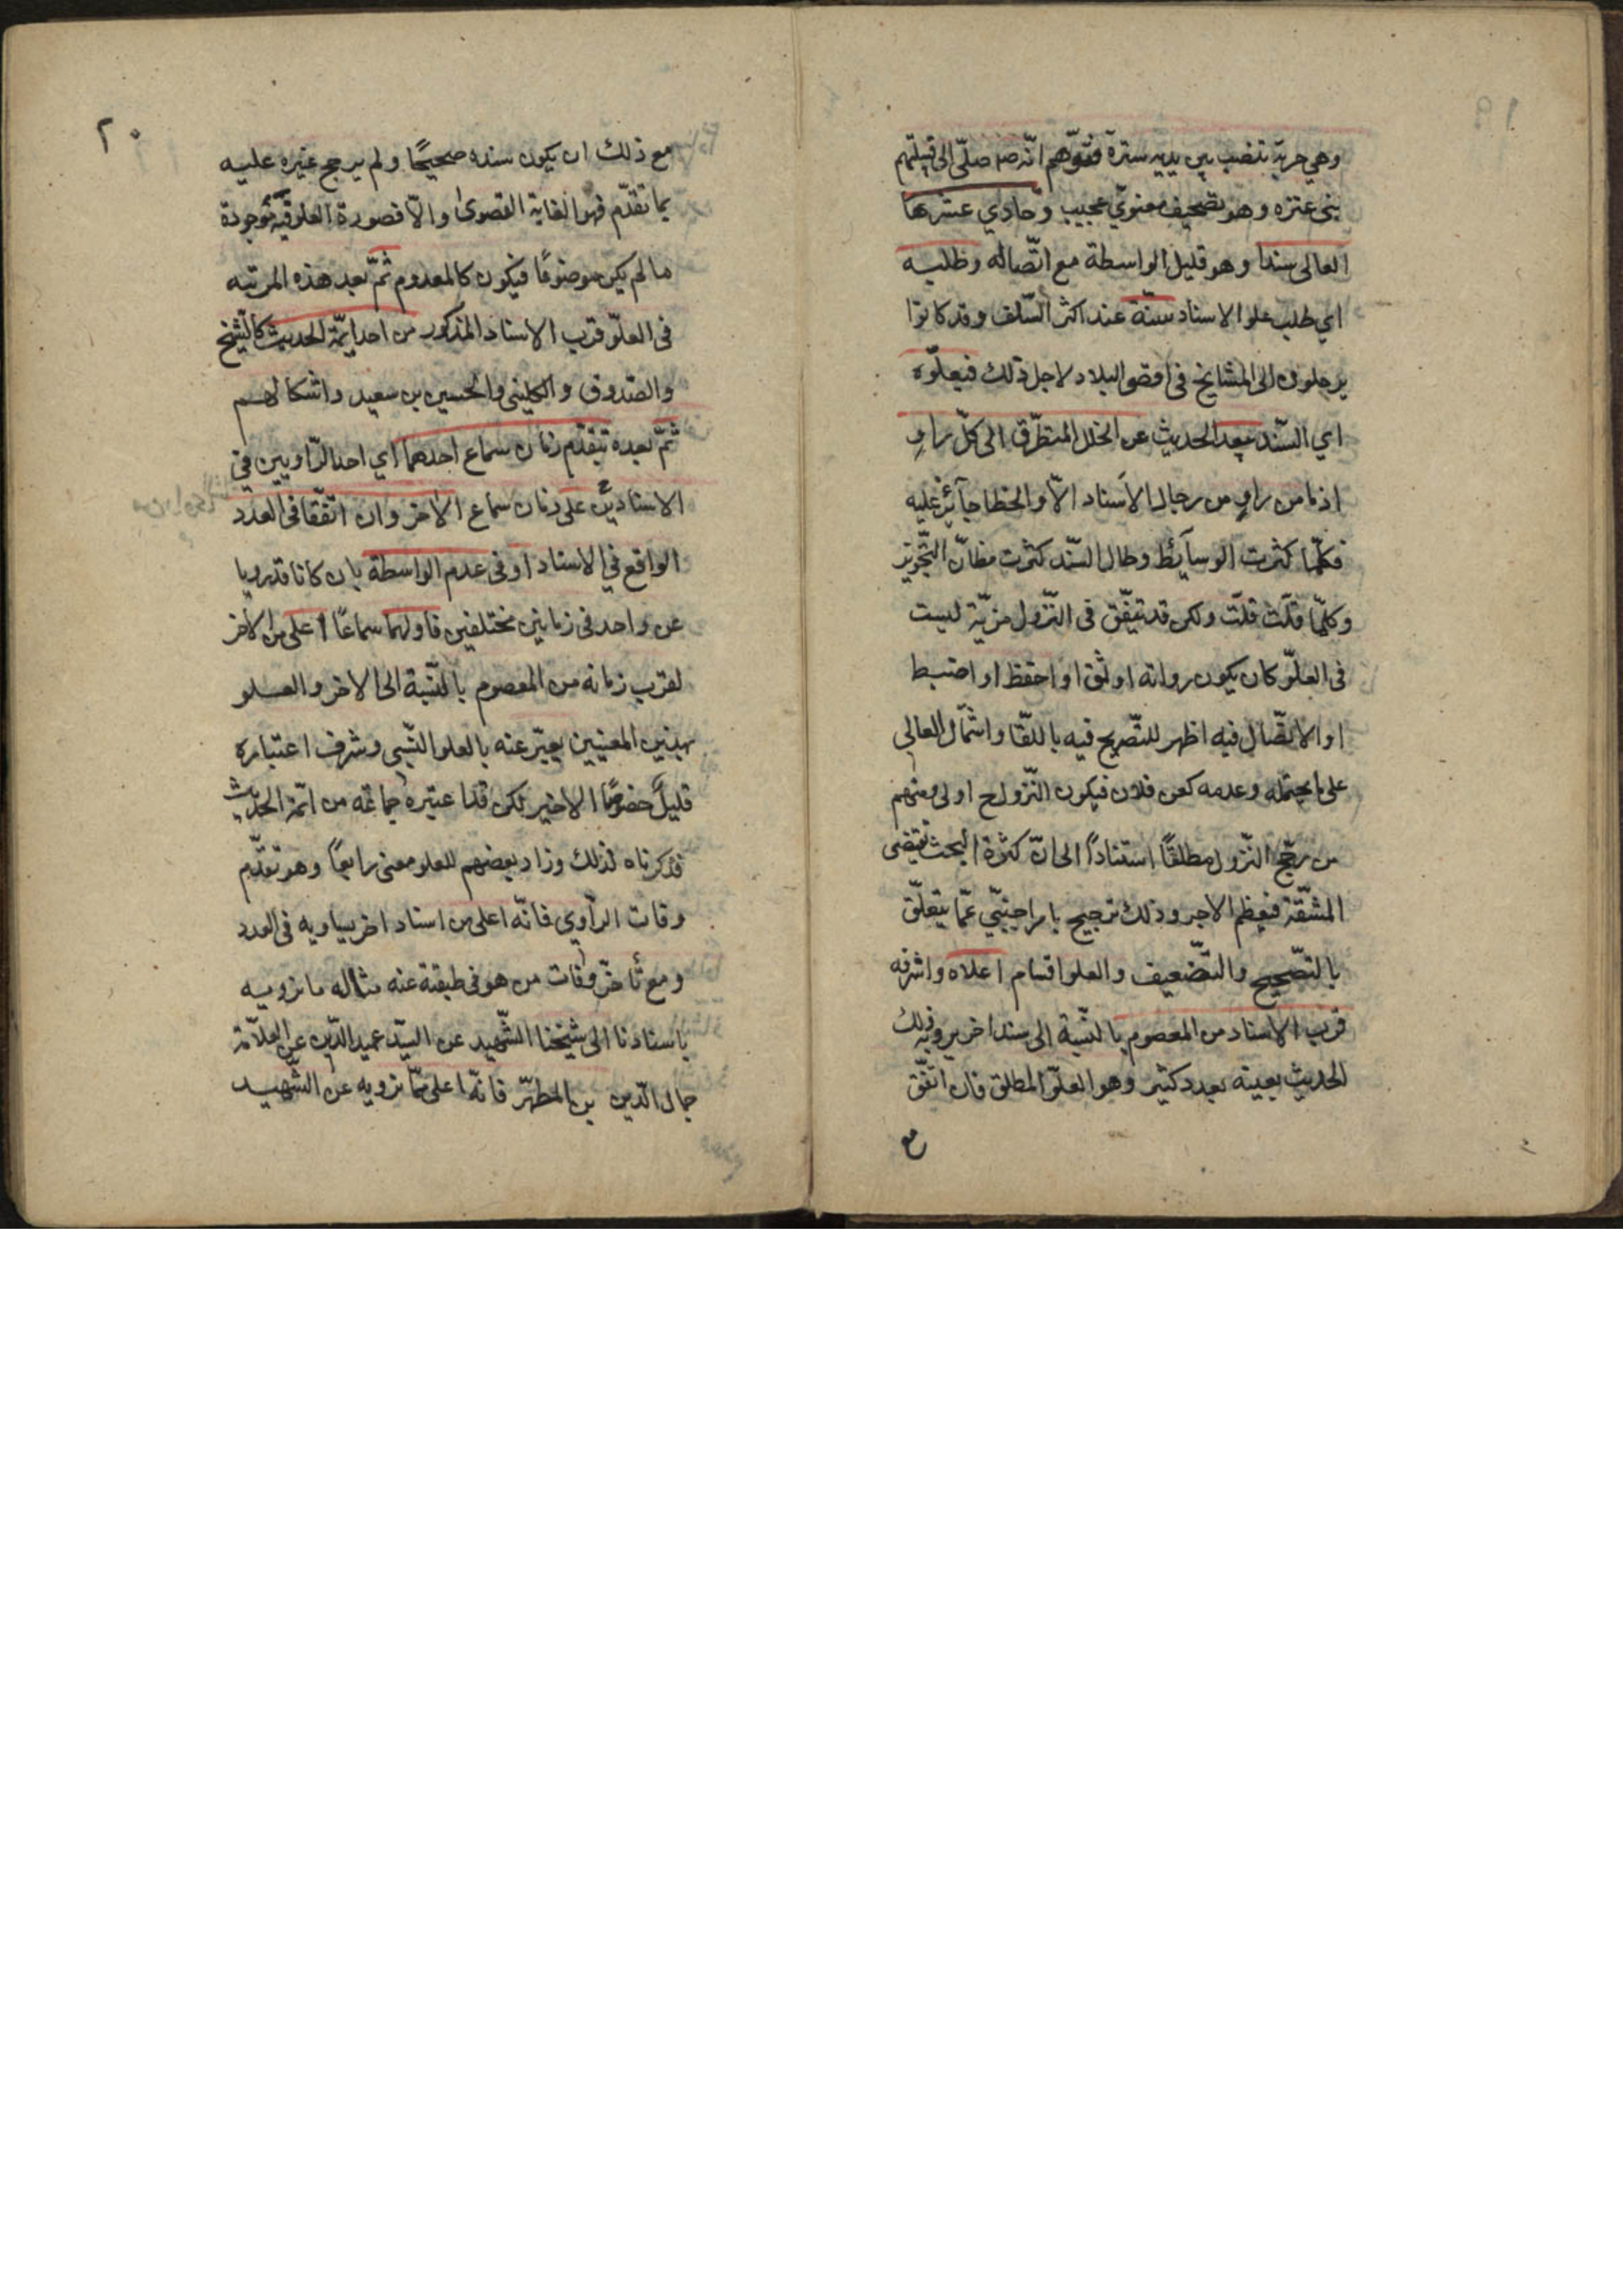 ١٩
وهي حربة تنصب بين يديه سترة فتوهم انّه صم صلّى الى قبيلتهم
بنى عنزه وهو تصحيف معنويّ عجيب وحادي عشرها
العالى سندا وهو قليل الواسطة مع اتّصاله وطلبه
اي طلب علو الاسناد سنّة عند اكثر السّلف وقد كانوا
يرحلون الى المشايخ فى اقصى البلاد لاجل ذلك فبعلوّه
اي السّند يبعد الحديث عن الخلل المتطرّق الى كلّ راوٍ
اذ ما من راوٍ من رجال الاسناد الّا والخطا جآئز عليه
فكلّما كثرت الوسآئط وطال السّند كثرت مظانّ التّجويز
وكلّما قلّت قلّت ولكن قد تتّفق فى النّزول مزيّة ليست
فى العلوّ كان يكون رواته اوثق او احفظ او اضبط
او الاتّصال فيه اظهر للتّصريح فيه باللّقا واشتمال العالي
على ما يحتمله وعدمه كعن فلان فيكون النّزول ح اولى ومنهم
من رجّح النّزول مطلقًا استنادًا الى انّ كثرة البحث تقتضى
المشقّة فيعظم الاجر وذلك ترجيح بامر اجنبّي عمّا يتعلّق
بالتّصحيح والتّضعيف والعلو اقسام اعلاه واشرفه
قرب الاسناد من المعصوم بالنّسبة الى سند اخر يروى به ذلك
الحديث بعينه بعدد كثير وهو العلوّ المطلق فان اتّفق
مع
٢٠
مع ذلك ان يكون سنده صحيحًا ولم يرجح غيره عليه
بما تقدّم فهو الغاية القصوى والّا فصورة العلو فيه موجودة
ما لم يكن موضوعًا فيكون كالمعدوم ثمّ بعد هذه المرتبه
فى العلوّ قرب الاسناد المذكور من احد ايمّة الحديث كالشّيخ
والصّدوق والكلينى والحسين بن سعيد واشكالهم
ثمّ بعده تقدّم زمان سماع احدهما اي احد الرّاويين في
الاسنادين على زمان سماع الاخر وان اتّفقا فى العدد
الواقع في الاسناد او فى عدم الواسطة بان كانا قد رويا
عن واحد فى زمانين مختلفين فاولهما سماعًا اعلى من الاخر
لقرب زمانه من المعصوم بالنّسبة الى الاخر والعلو
بهذين المعنيين يعبّر عنه بالعلو النّسبى وشرف اعتباره
قليل خصوصًا الاخير لكن قد اعتبره جماعة من ائمة الحديث
فذكرناه لذلك وزاد بعضهم للعلو معنى رابعًا وهو تقدّم
وفات الرّاوي فانّه اعلى من اسناد اخر يساويه فى العدد
ومع تأخرّ وفات من هو فى طبقته عنه مثاله ما نرويه
باسنادنا الى شيخنا الشّهيد عن السيّد عميد الدّين عن العلّامة
جمال الدّين بن المطهّر فانّه اعلى ممّا نرويه عن الشّهيد